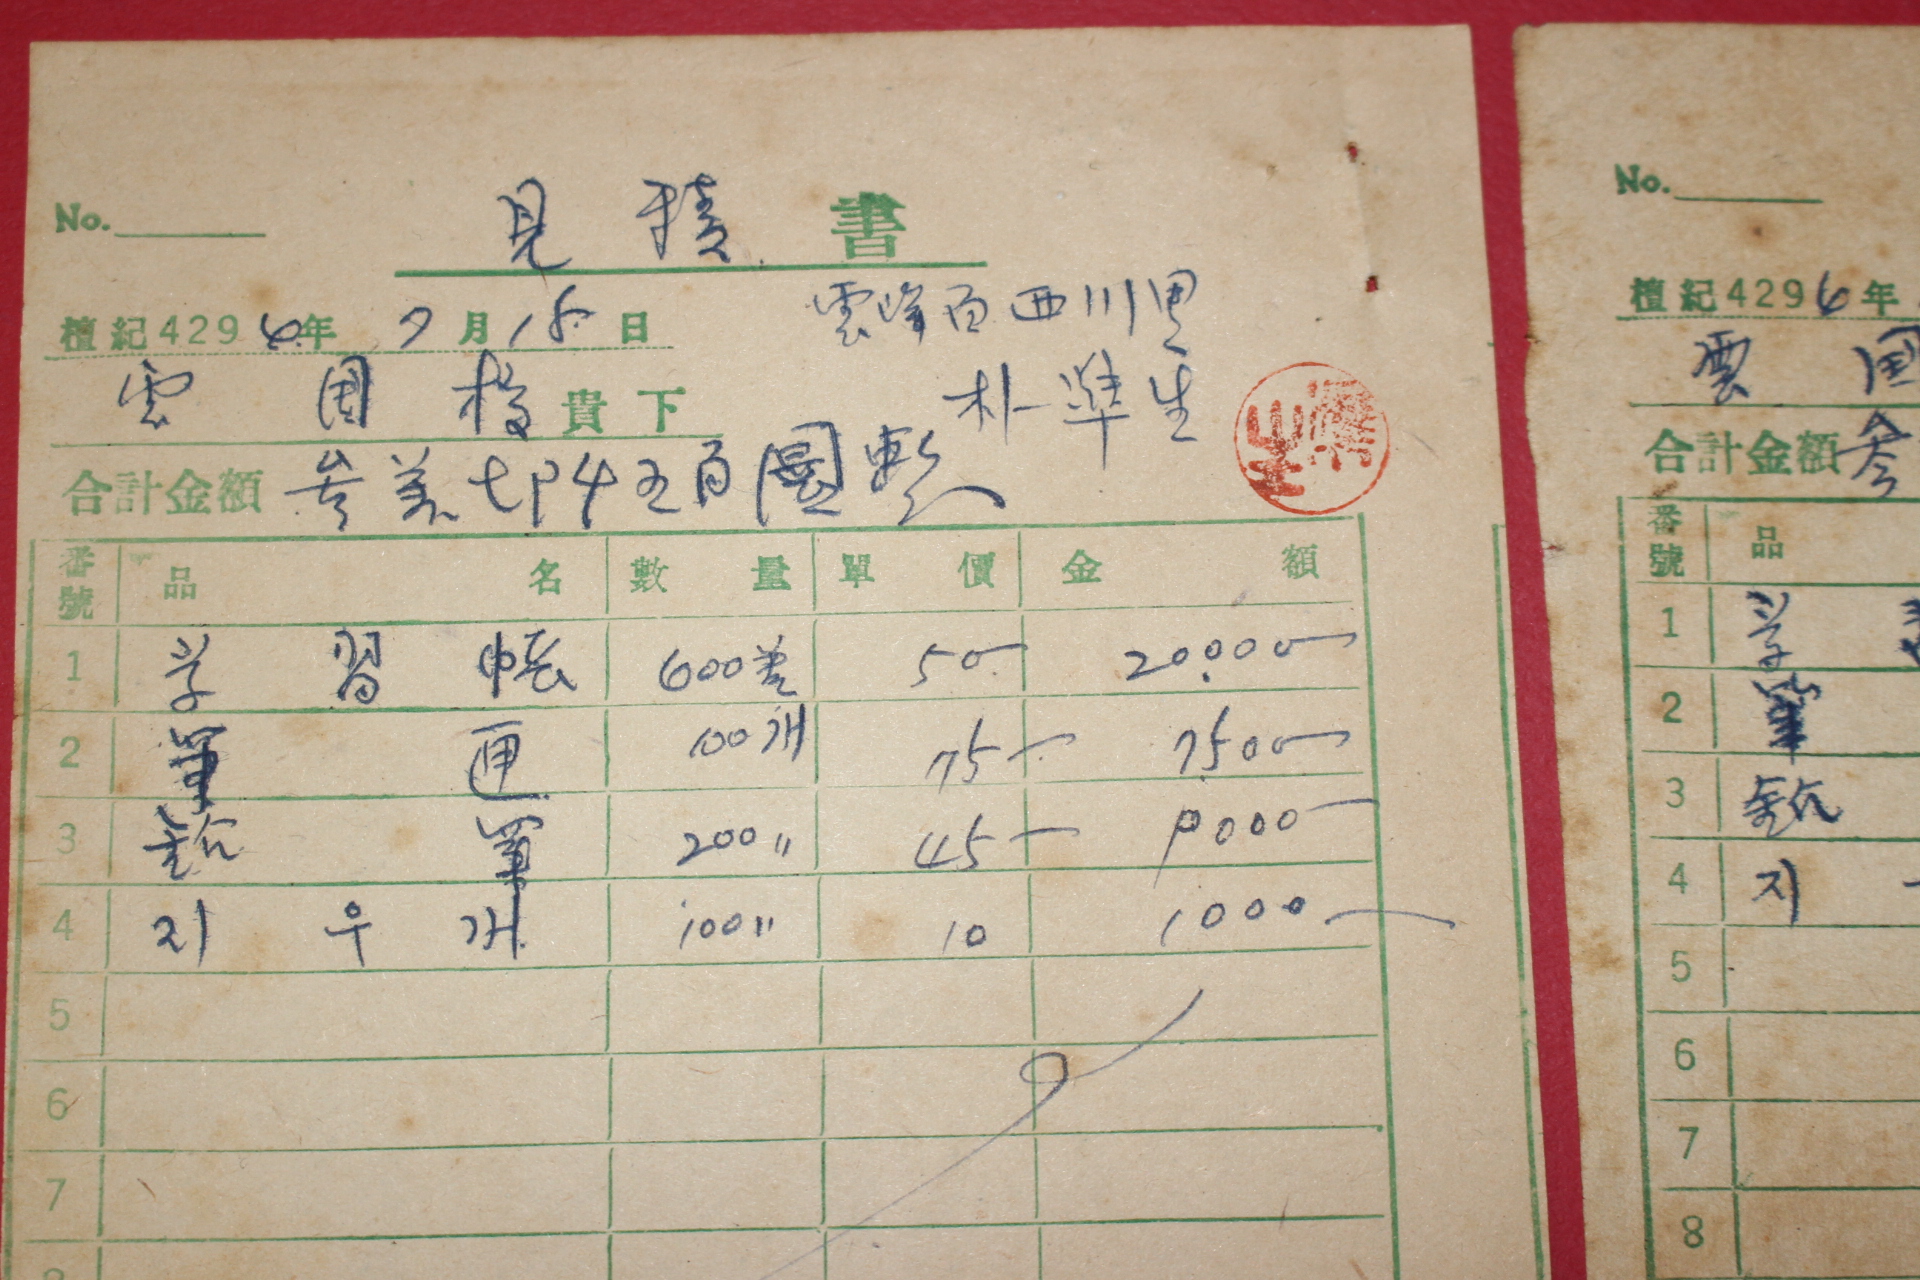 No.
見積書
檀紀4294年 7月15日
雲峰面西川里
雲固校貴下
朴準生
合計金額 參萬七阡五百圜整
番號 品名 數量 單價 金額
1 学習帳 600巻 50 20000
2 筆匣 100개 75 7500
3 鉛筆 200〃 45 9000
4 지우개 100〃 10 1000
5
6
7
No.
檀紀4294年
雲固
合計金額 參
番號 品
1 学
2 筆
3 鉛
4 지
5
6
7
8